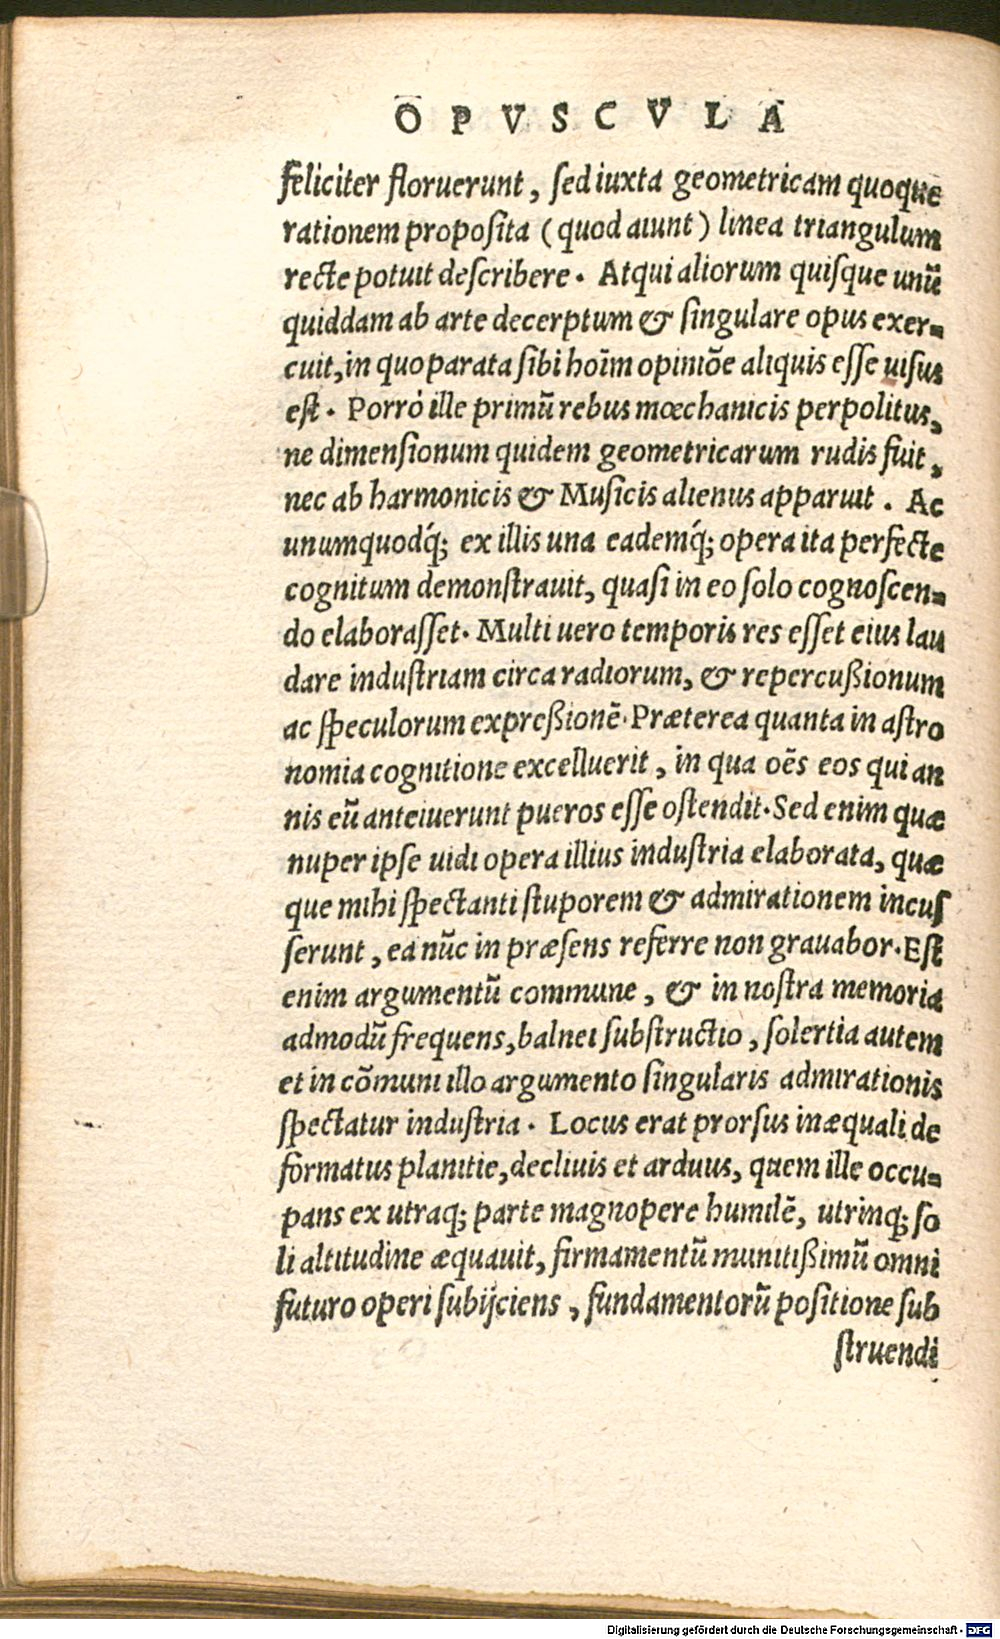 OPVSCVLA
feliciter floruerunt, ſed iuxta geometricam quoque
rationem propoſita (quod aiunt) linea triangulum
recte potuit deſcribere. Atqui aliorum quiſque unũ
quiddam ab arte decerptum & ſingulare opus exer-
cuit, in quo parata ſibi hoīm opiniõe aliquis eſſe uiſus
eſt. Porrò ille primũ rebus mœchanicis perpolitus,
ne dimenſionum quidem geometricarum rudis fuit,
nec ab harmonicis & Muſicis alienus apparuit. Ac
unumquodq́; ex illis una eademq́; opera ita perfecte
cognitum demonſtrauit, quaſi in eo ſolo cognoſcen-
do elaboraſſet. Multi uero temporis res eſſet eius lau
dare induſtriam circa radiorum, & repercußionum
ac ſpeculorum expreßionẽ. Præterea quanta in aſtro
nomia cognitione excelluerit, in qua oẽs eos qui an
nis eũ anteiuerunt pueros eſſe oſtendit. Sed enim quæ
nuper ipſe uidi opera illius induſtria elaborata, quæ
que mihi ſpectanti ſtuporem & admirationem incuſ
ſerunt, ea nũc in præſens referre non grauabor. Eſt
enim argumentũ commune, & in noſtra memoria
admodũ frequens, balnei ſubſtructio, ſolertia autem
et in cõmuni illo argumento ſingularis admirationis
ſpectatur induſtria. Locus erat prorſus inæquali de
formatus planitie, decliuis et arduus, quem ille occu-
pans ex utraq; parte magnopere humilẽ, utrinq; ſo
li altitudine æquauit, firmamentũ munitißimũ omni
futuro operi ſubijciens, fundamentorũ poſitione ſub
ſtruendi
Digitalisierung gefördert durch die Deutsche Forschungsgemeinschaft - DFG